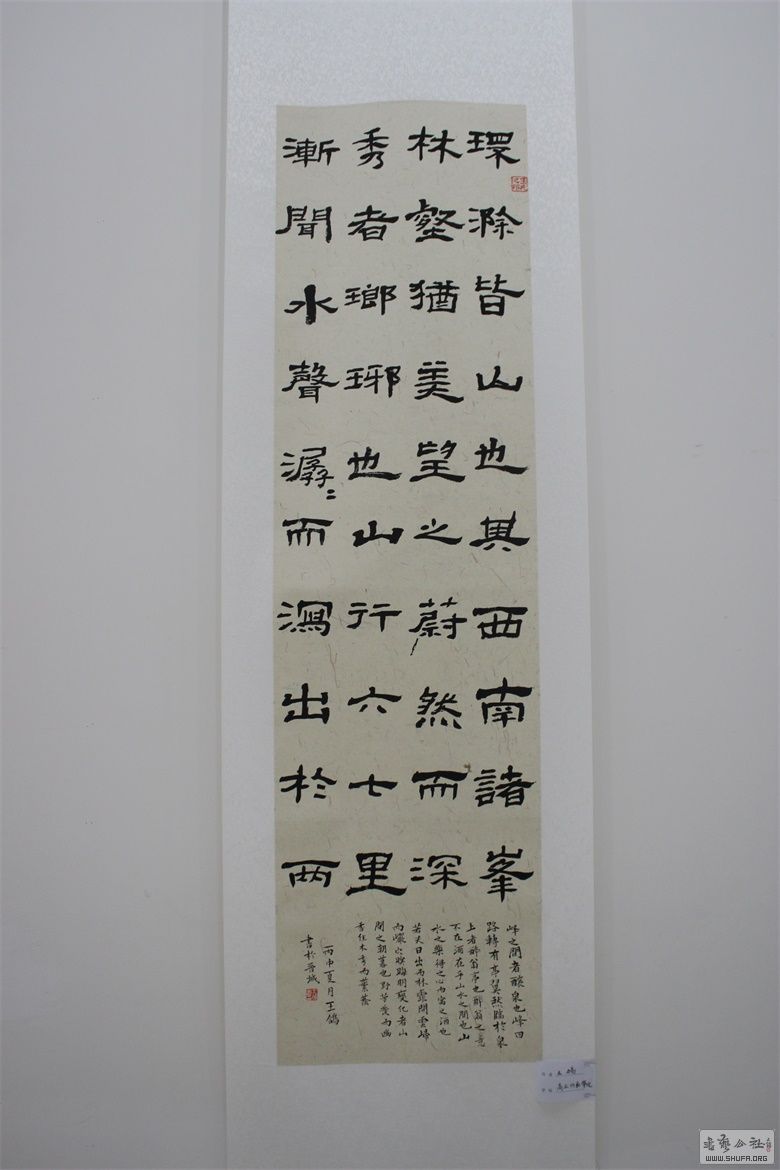 環滁皆山也其西南諸峯
林壑猶美望之蔚然而深
秀者瑯琊也山行六七里
漸聞水聲潺〻而瀉出於兩
峰之間者釀泉也峰回
路轉有亭翼然臨於泉
上者醉翁亭也醉翁之意
不在酒在乎山水之間也山
水之樂得之心而寓之酒也
若夫日出而林霏開雲歸
而巖穴暝晦明變化者山
間之朝暮也野芳發而幽
香佳木秀而繁蔭
丙申夏月王鴿
書於晉城
書艺公社
WWW.SHUFA.ORG